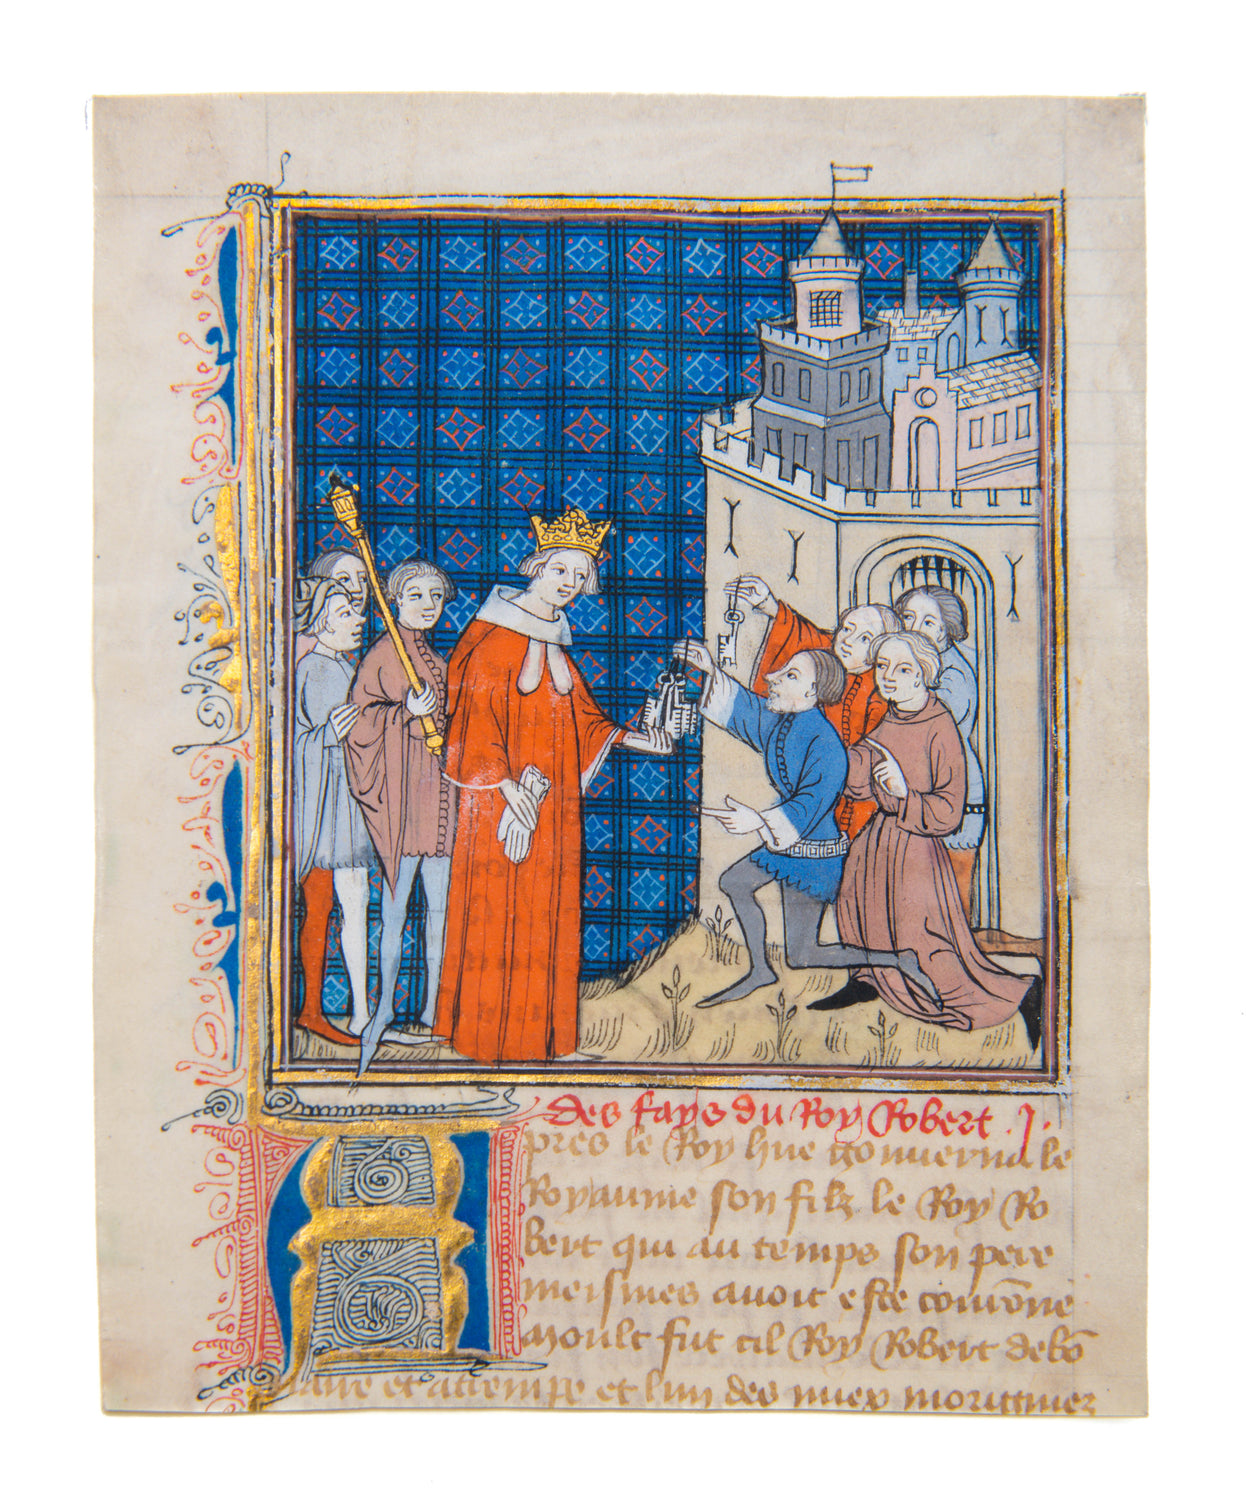 Des fays du Roy Robert .J.
Apres le Roy hue gouuerna le
Royaume son filz le Roy Ro
bert qui au temps son pere
meismes auoit este couronne
Moult fut cil Roy Robert debo
naire et attempe et lun des mex moriginez